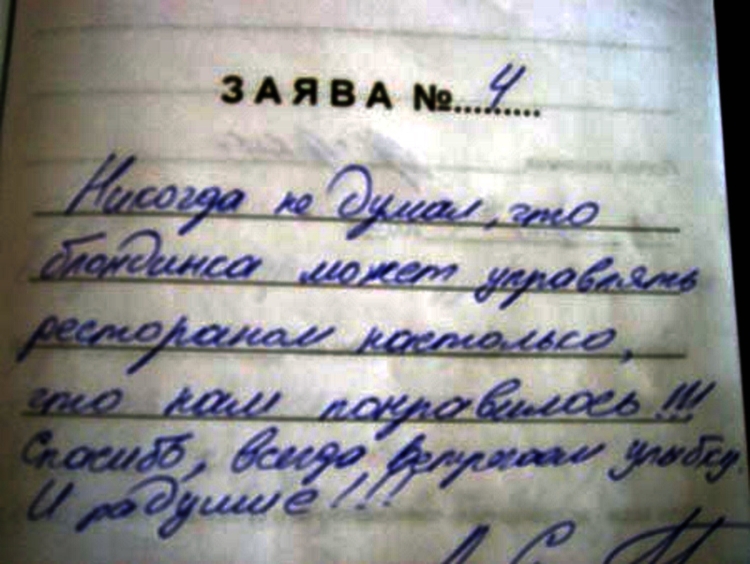 ЗАЯВА №.........4
Никогда не думал, что
блондинка может управлять
рестораном настолько,
что нам понравилось!!!
Спасибо, всегда встречаем улыбку
И радушие!!!